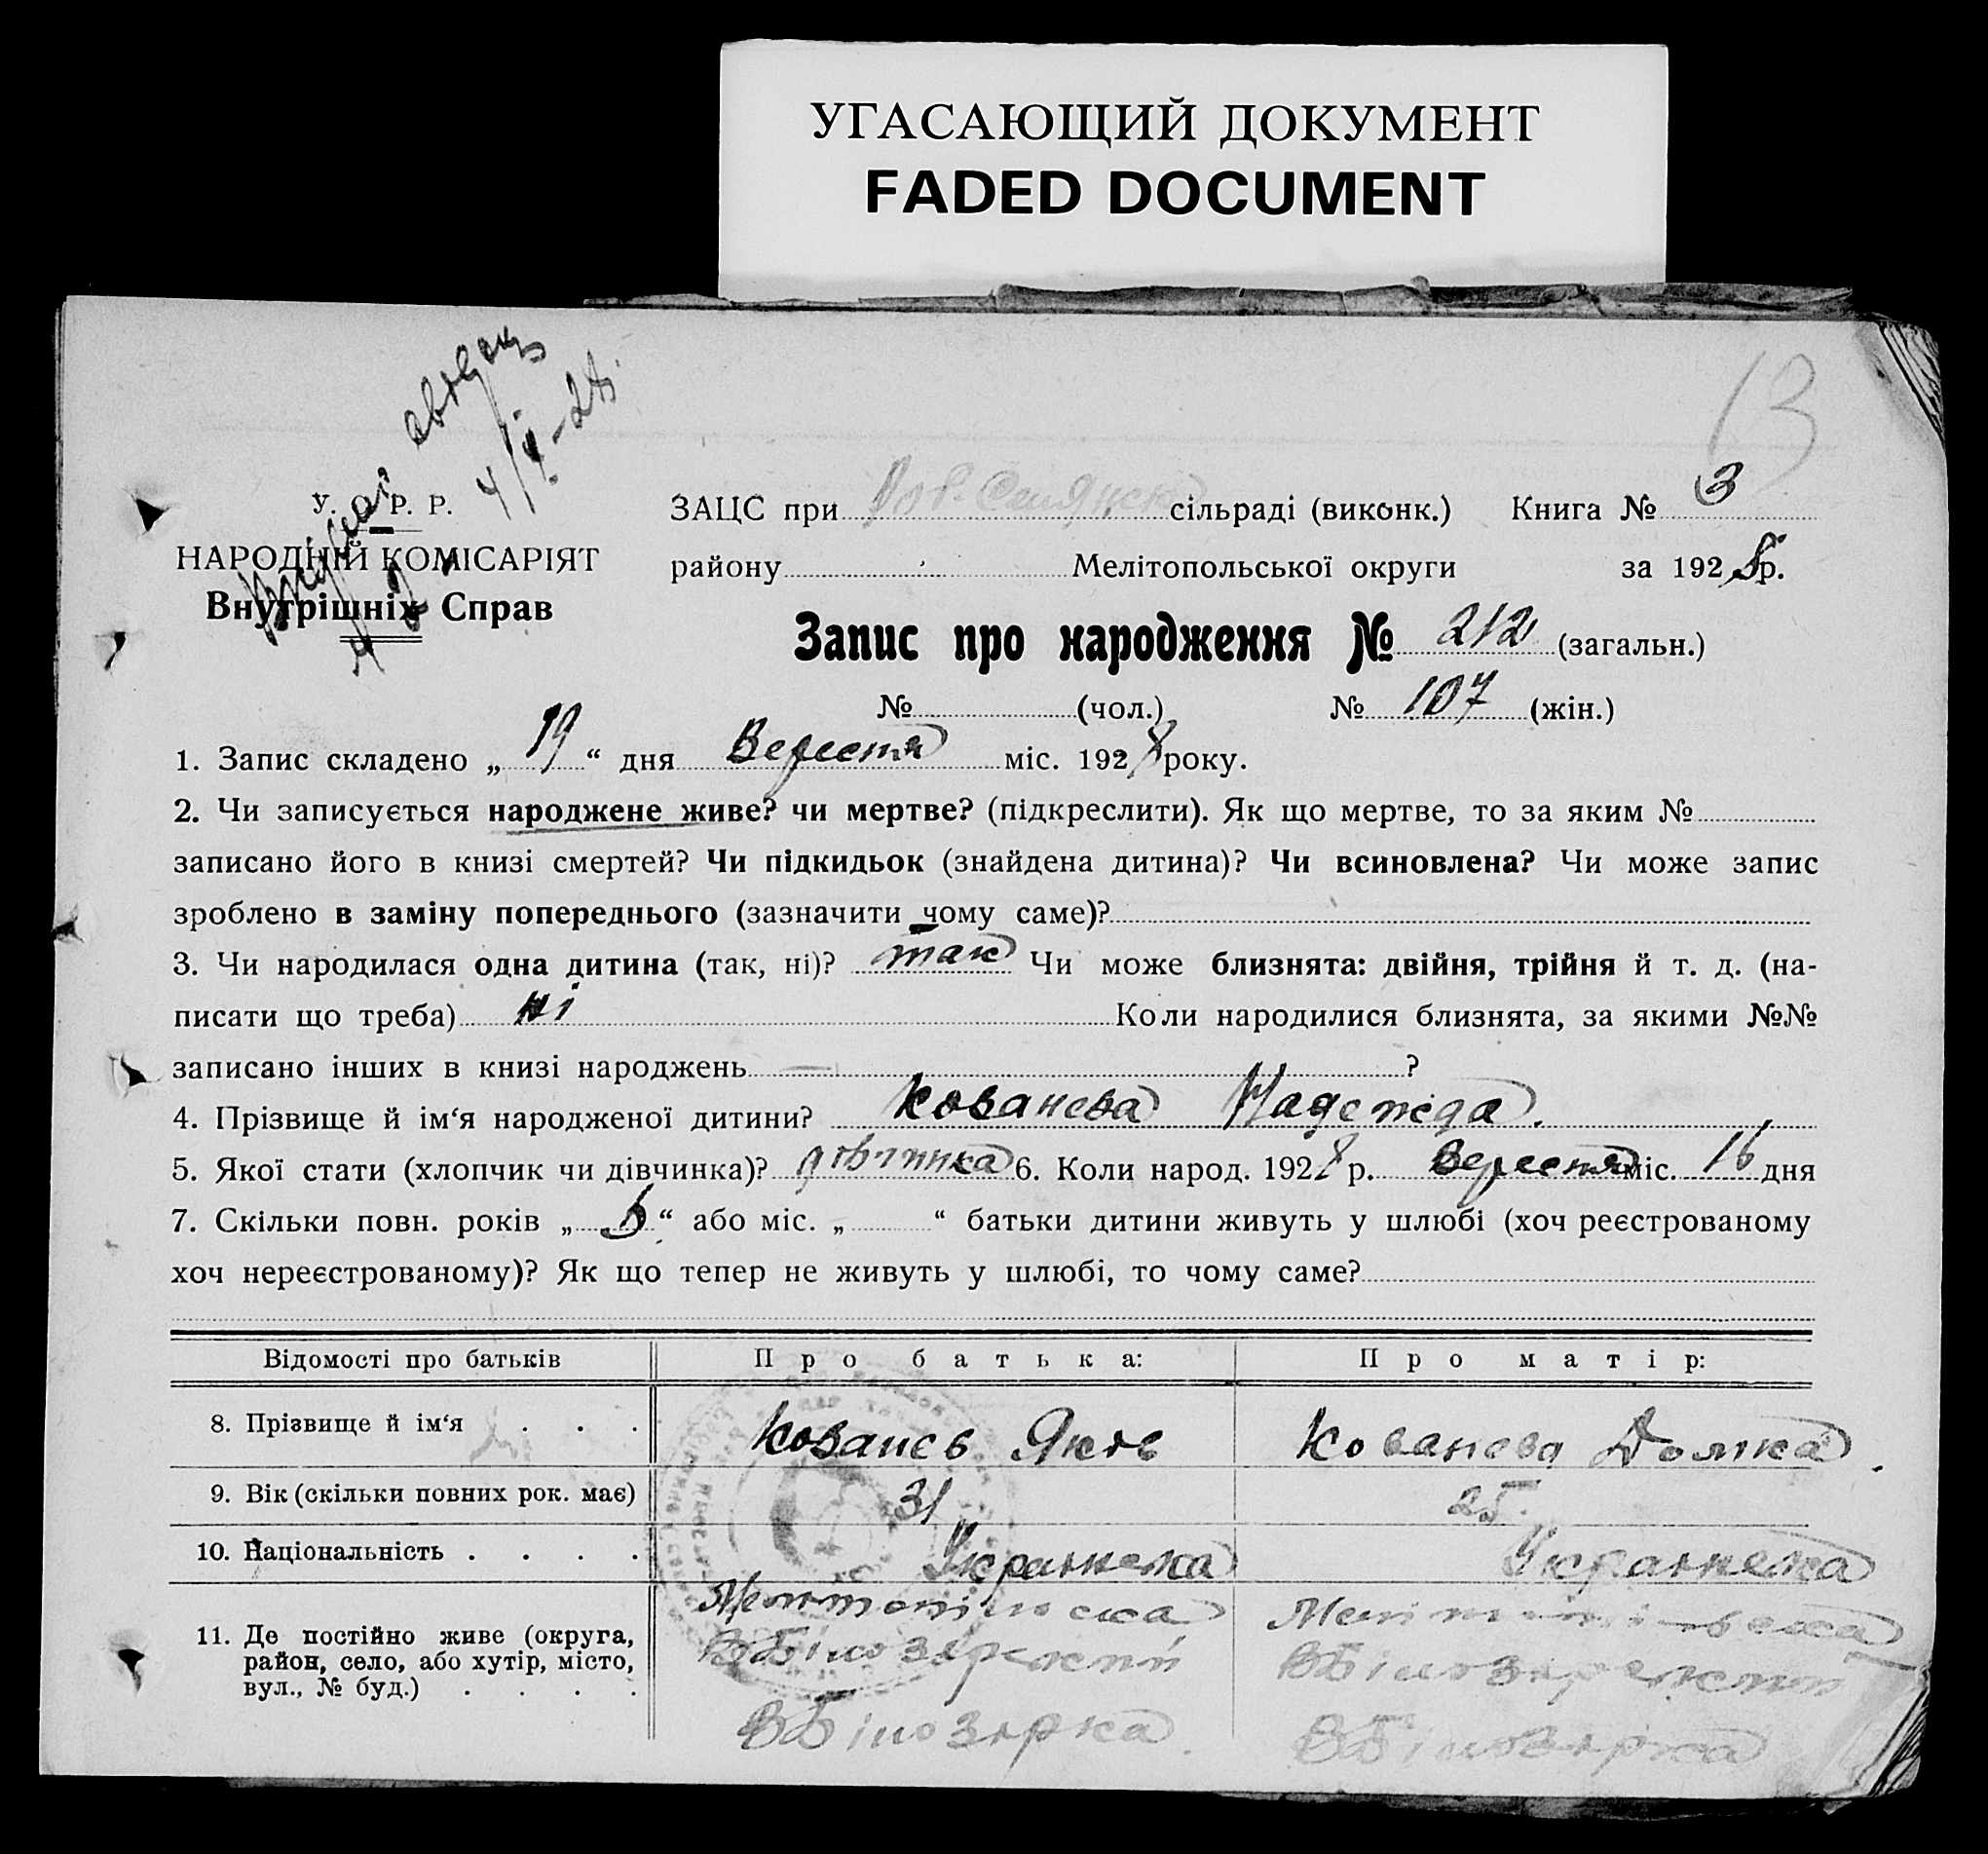 УГАСАЮЩИЙ ДОКУМЕНТ
FADED DOCUMENT
13
У. С. Р. Р.
НАРОДНІЙ КОМІСАРІЯТ
Внутрішніх Справ
ЗАЦС при сільраді (виконк.) Книга № 3
району Мелітопольської округи за 1928 р.
Запис про народження № 212 (загальн.)
№ (чол.) № 107 (жін.)
1. Запис складено „ 19 “ дня Вересня міс. 1928 року.
2. Чи записується народжене живе? чи мертве? (підкреслити). Як що мертве, то за яким №
записано його в книзі смертей? Чи підкидьок (знайдена дитина)? Чи всиновлена? Чи може запис
зроблено в заміну попереднього (зазначити чому саме)?
3. Чи народилася одна дитина (так, ні)? так Чи може близнята: двійня, трійня й т. д. (на-
писати що треба) ні Коли народилися близнята, за якими №№
записано інших в книзі народжень — ?
4. Прізвище й ім‘я народженої дитини? Кованева Надежда.
5. Якої стати (хлопчик чи дівчинка)? дівчинка 6. Коли народ. 1928 р. Вересня міс. 16 дня
7. Скільки повн. років „ 6 “ або міс. „ “ батьки дитини живуть у шлюбі (хоч реєстрованому
хоч нереєстрованому)? Як що тепер не живуть у шлюбі, то чому саме?
Відомості про батьків Про батька: Про матір:
8. Прізвище й ім‘я . . . Кованєв Яків Кованева Домка
9. Вік (скільки повних рок. має) 31 25
10. Національність . . . . Українська Українська
11. Де постійно живе (округа, район, село, або хутір, місто, вул., № буд.) . . . . Мелітопільска Мелітопільска
ВБілозерский ВБілозерский
ВБілозірка ВБілозірка